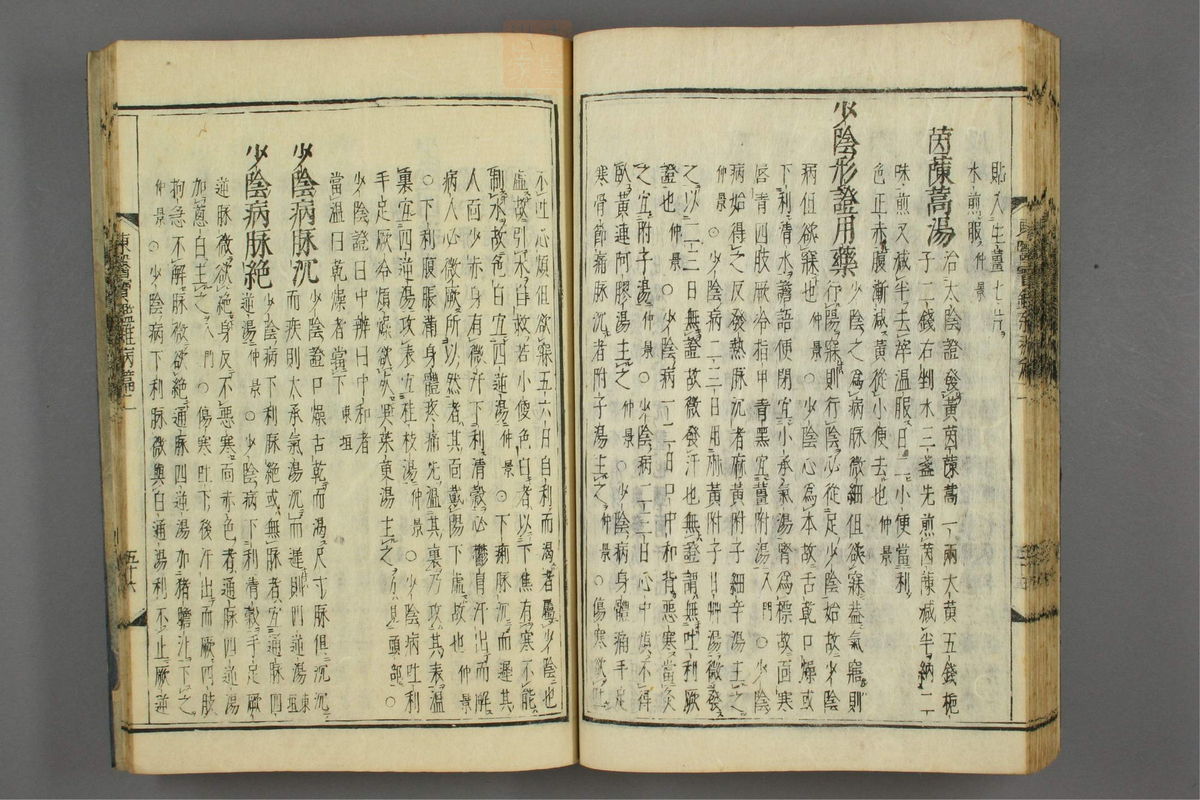 貼入生薑七片
水煎服仲景
茵蔯蒿湯治太陰證發黃茵蔯蒿一兩大黃五錢梔
子二錢右剉水三盞先煎茵蔯減半納二
味煎又減半去滓溫服日二小便當利
色正赤腹漸減黃從小便去也仲景
少陰形證用藥少陰之爲病脉微細但欲寐盖氣寤則
行陽寐則行陰必從足少陰始故少陰
病但欲寐也仲景○少陰心爲本故舌乾口燥或
下利淸水譫語便閉宜小承氣湯腎爲標故面寒
唇靑四肢厥冷指甲靑黑宜薑附湯入門○少陰
病始得之反發熱脉沉者麻黃附子細辛湯主之
仲景○少陰病二三日用麻黃附子甘艸湯微發
之以二三日無證故微發汗也無證謂無吐利厥
證也仲景○少陰病一二日口中和背惡寒當灸
之宜附子湯仲景○少陰病二三日心中煩不得
臥黃連阿膠湯主之仲景○少陰病身體痛手足
寒骨節痛脉沉者附子湯主之仲景○傷寒欲吐
東醫寶鑑雜病篇二
不吐心煩但欲寐五六日自利而渴者屬少陰也
虛故引水自救若小便色白者以下焦有寒不能
制水故色白宜四逆湯仲景○下利脉沉而遲其
人面少赤身有微汗下利淸穀必鬱冒汗出而解
病人必微厥所以然者其面戴陽下虛故也仲景
○下利腹脹滿身體疼痛先溫其裏乃攻其表溫
裏宜四逆湯攻表宜桂枝湯仲景○少陰病吐利
手足厥冷煩燥欲死吳茱萸湯主之方見頭部○
少陰證口中辨曰口中和者
當溫口乾燥者當下東垣
少陰病脉沉少陰證口燥舌乾而渴尺寸脉但沉沉
而疾則大承氣湯沉而遲則四逆湯東垣
少陰病脉絶少陰病下利脉絶或無脉者宜通脉四
逆湯仲景○少陰病下利淸穀手足厥
逆脉微欲絶身反不惡寒面赤色者通脉四逆湯
加葱白主之入門○傷寒吐下後汗出而厥四肢
拘急不解脉微欲絶通脉四逆湯加猪膽汁下之
仲景○少陰病下利脉微與白通湯利不止厥逆
東醫寶鑑雜病篇二
五十六